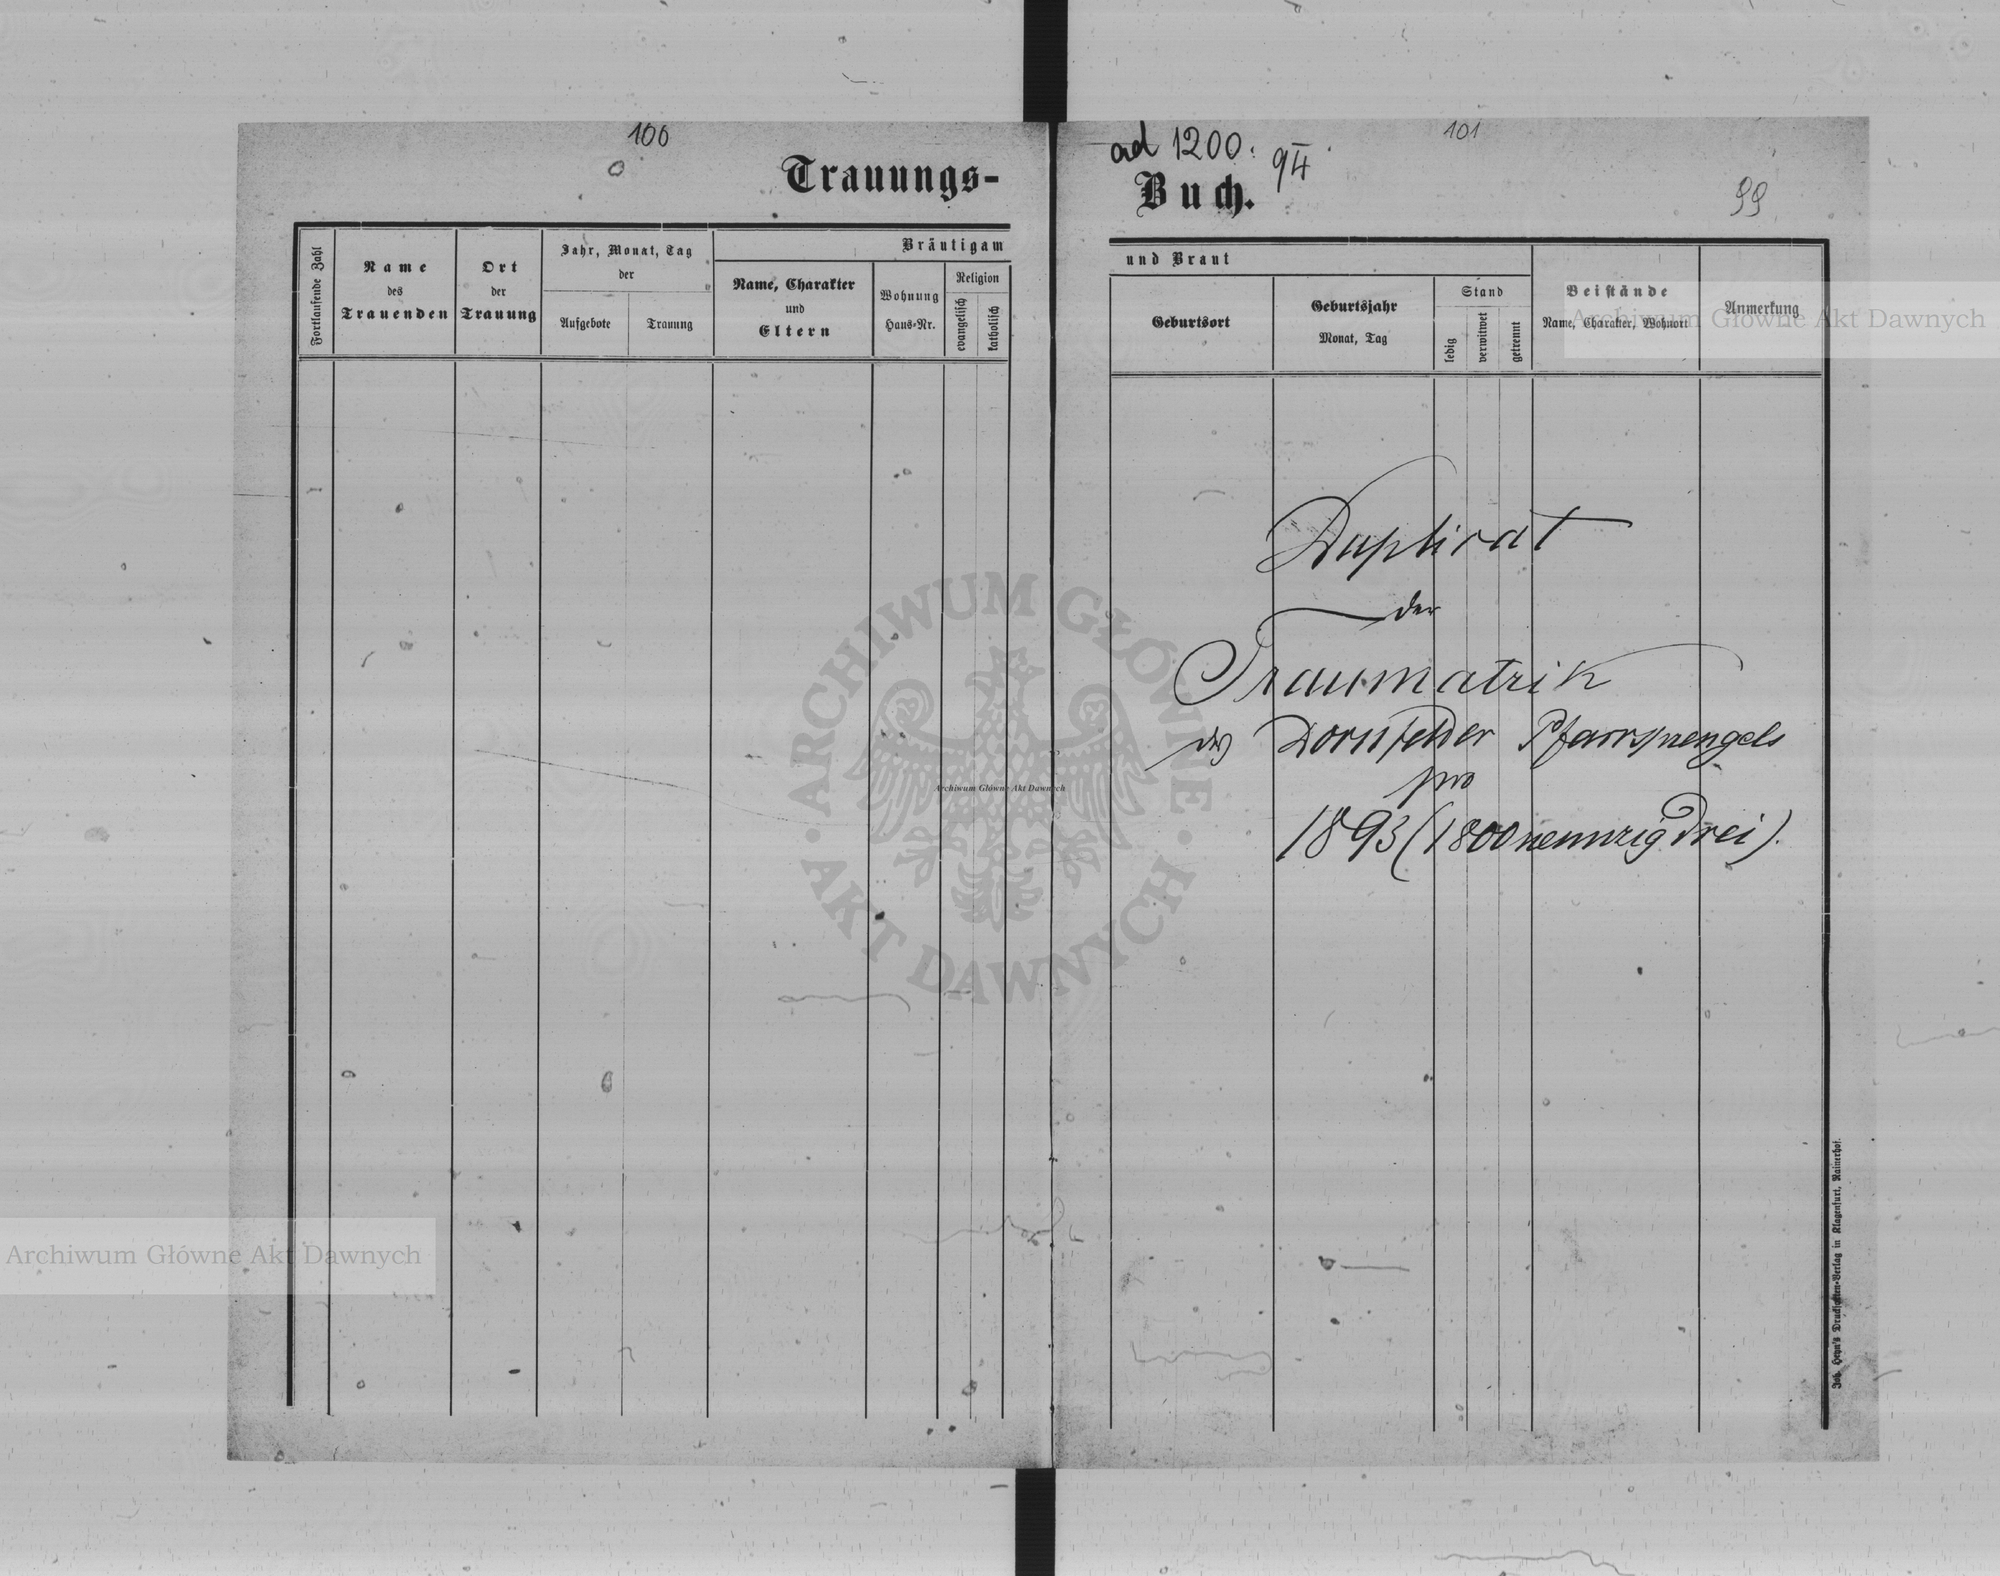 100
Trauungs-
Fortlaufende Zahl
Name
des
Trauenden
Ort
der
Trauung
Jahr, Monat, Tag
der
Aufgebote
Trauung
Bräutigam
Name, Charakter
und
Eltern
Wohnung
Haus-Nr.
Religion
evangelisch
katholisch
ad 1200:
94
101
Buch.
99
und Braut
Geburtsort
Geburtsjahr
Monat, Tag
Stand
ledig
verwitwet
getrennt
Beistände
Name, Charakter, Wohnort
Anmerkung
Duplicat
der
Traumatrik
des Dornfelder Pfarrsprengels
pro
1893 (1800neunzigdrei).
Joh. Heyn's Drucksorten-Verlag in Klagenfurt, Rainerhof.
Archiwum Główne Akt Dawnych
ARCHIWUM GŁÓWNE
AKT DAWNYCH
Archiwum Główne Akt Dawnych
Archiwum Główne Akt Dawnych